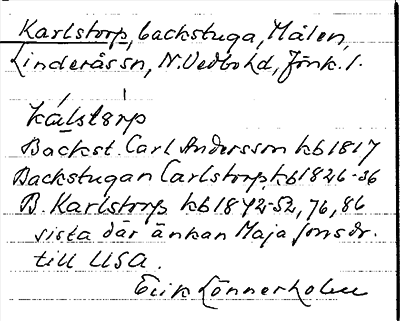 Karlstorp, backstuga, Målen,
Linderås sn, N. Vedbo hd, Jönk. l.
kálstərp
Backst. Carl Andersson kb 1817
Backstugan Carlstorp, kb 1826-36
B. Karlstorp kb 1842-52, 76, 86
sista där änkan Maja Jonsdr.
till USA.
Erik Lönnerholm